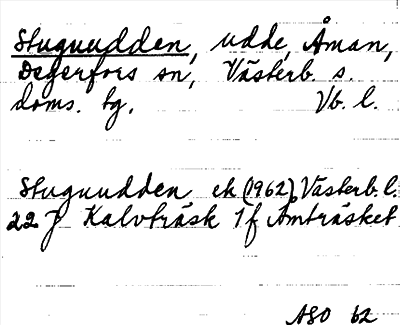 Stuguudden, udde, Åman,
Degerfors sn, Västerb. s.
doms. tg. Vb. l.
Stuguudden ek (1962), Västerb. l.
22 J Kalvträsk 1 f Åmträsket
ASO 62